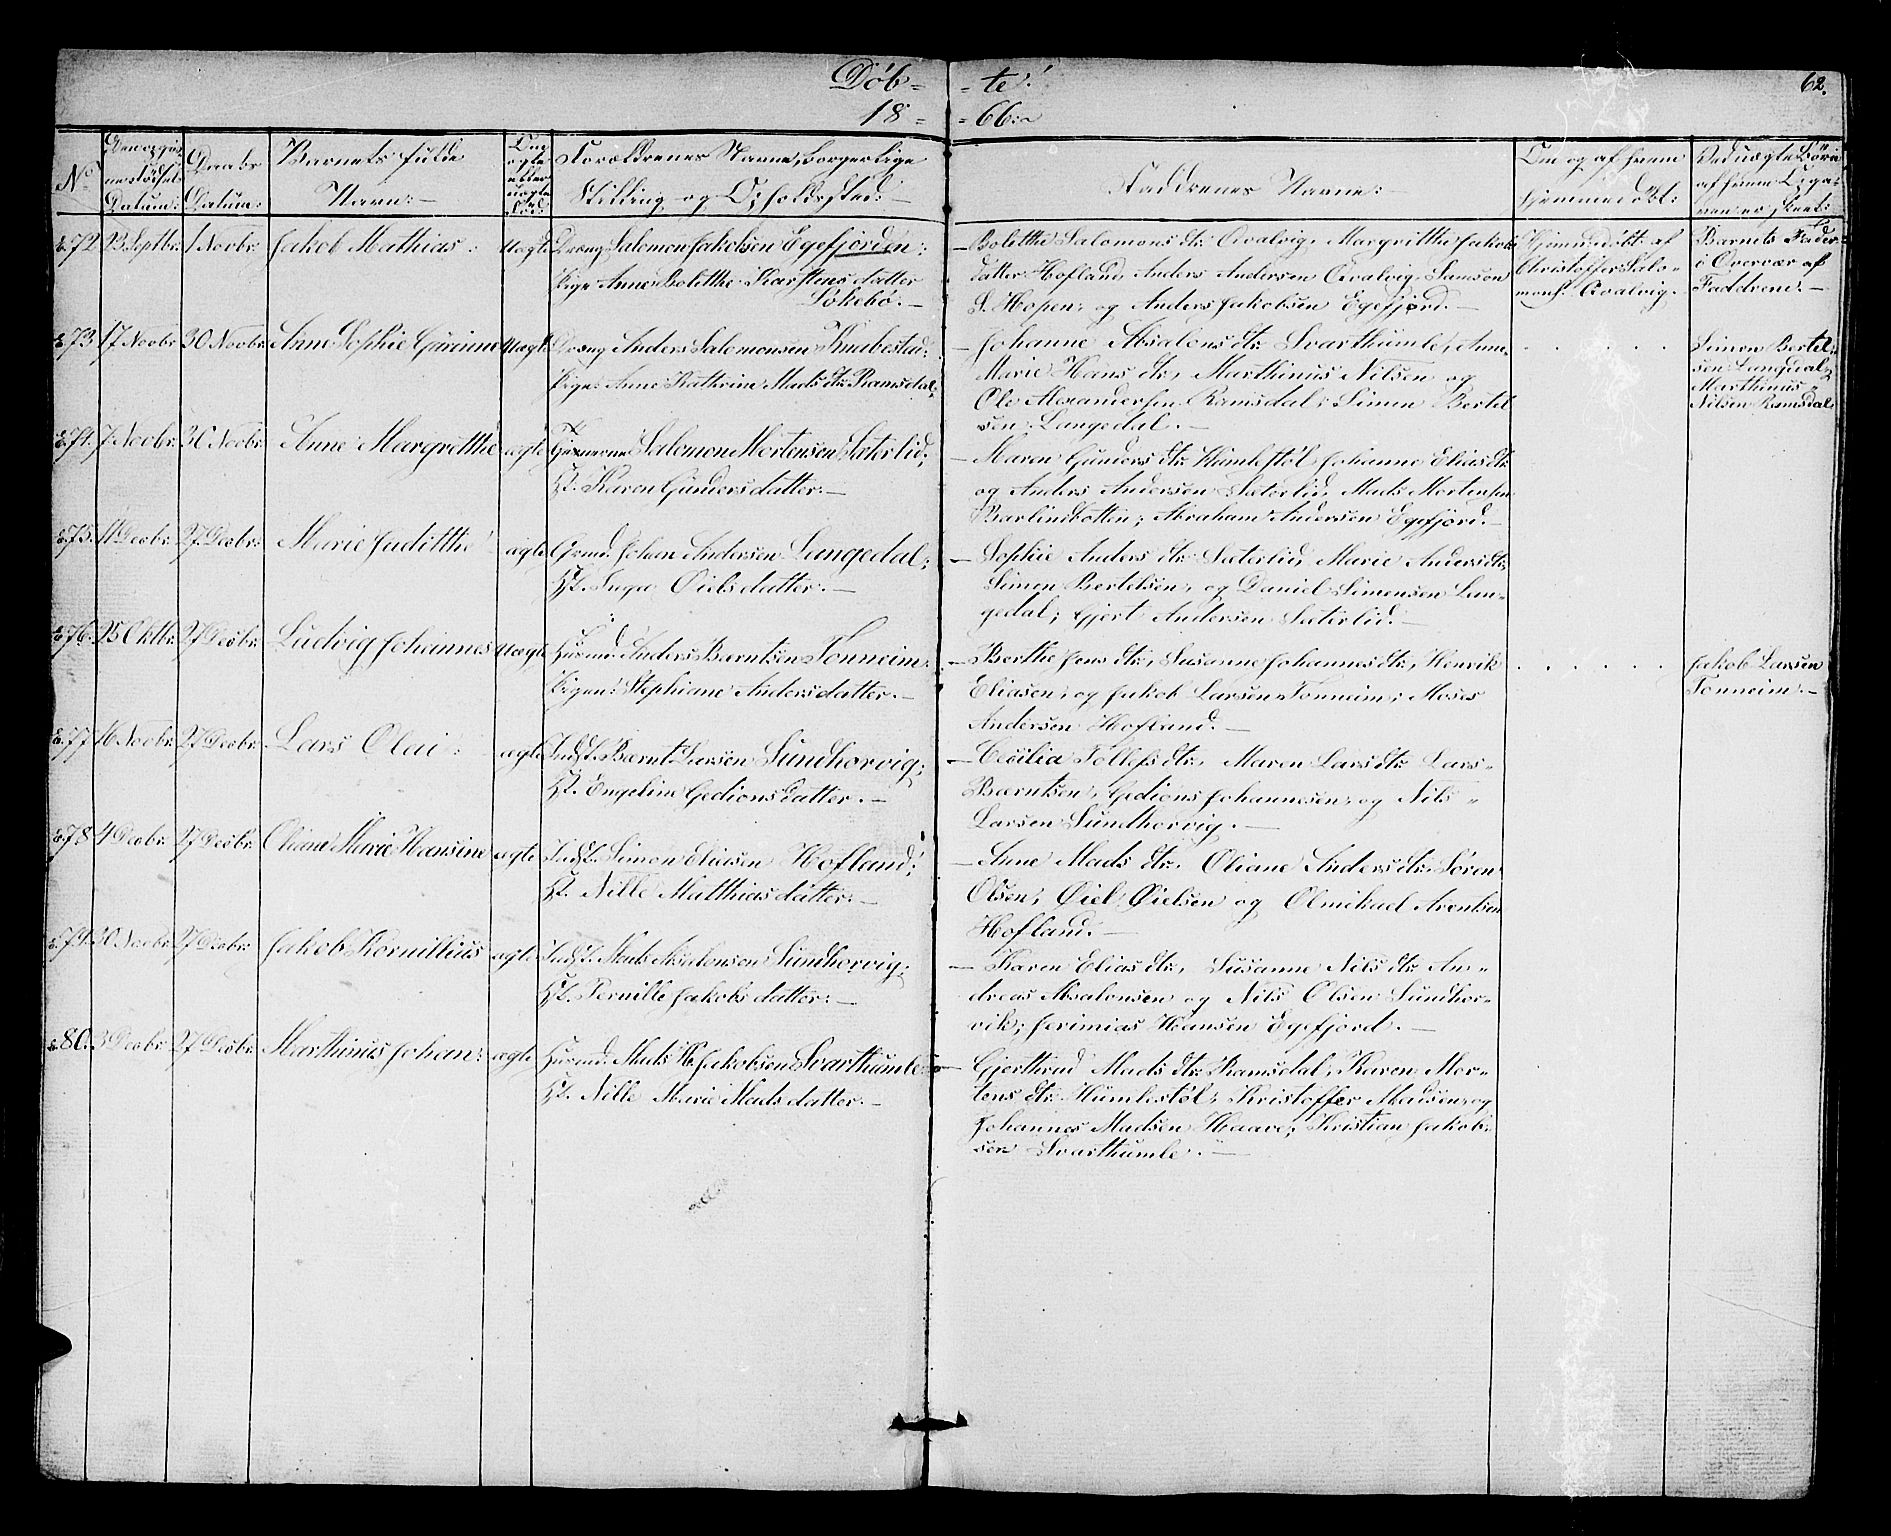 Döb= =te!
18= =66:
62.
No Datum: Daabs Datum:- Barnets fulde Navn:- Om ægte eller uægte Forældrenes Navne, borgerlige Stilling og Opholdssted:- Faddrenes Navne:- Om og af hvem hjemmedöbt: Ved uægte Börn af hvem
72. 23 Septbr. 1 Novbr. Jakob Mathias: Uægte Dreng Salomon Jakobsen Egefjorden:
Pige Anne Bolette Karstensdatter
Løkebø.-
- Bolithe Salomons dtr. Qvalvig, Margritthe Jakobs
datter Hofland, Anders Andersen Qvalvig, Samson
S. Hopen, og Anders Jakobsen Egefjord.-
Hjemmedøbt af
Christoffer Salo-
mons. Qvalvig.
Barnets Fader
i Overvær af
Faddrene.-
73. 17 Novbr. 30 Novbr. Anne Sophie Gurine Uægte Dreng Anders Salomonsen Knabestad:
Pige: Anne Kathrine Mads dtr. Ramsdal:
- Johanne Absalons dtr. Svarthumle, Anne
Marie Hans dtr., Marthinus Nilsen og
Ole Alexandersen Ramsdal; Simen Bertel
sen Langedal.-
Simon Bertel-
sen Langedal,
Marthinus
Nilsen Ramsdal
74. 7 Novbr. 30 Novbr. Anne Margretthe ægte Salomon Mortensen Sæterlid;
H. Karen Gundersdatter:-
- Maren Gunders dtr. Humlestøl, Johanne Elias dtr.
og Anders Andersen Sæterlid, Mads Mortensen
Barlindbotten; Abraham Andersen Egefjord.-
75. 11 Decbr. 27 Decbr. Marie Judithe ægte Grmd. Johan Andersen Langedal;
H. Inga Øielsdatter.-
- Sophie Anders dtr. Sæterlid, Marie Anders dtr.
Simen Bertelsen, og Daniel Simensen Lan-
gedal; Gjert Andersen Sæterlid.-
76. 25 Oktbr. 27 Decbr. Ludvig Johannes Uægte Husmd. Anders Bærntsen Tonneim.
Pigen: Stephiane Andersdatter.-
- Berthe Jens dtr., Susanne Johannes dtr., Henrik
Eliasen, og Jakob Larsen Tonneim; Moses
Andersen Hofland.-
Jakob Larsen
Tonneim.-
77. 16 Novbr. 27 Decbr. Lars Olai: ægte Indst. Bærnt Larsen Sundhorvig;
H. Engeline Gedionsdatter.-
- Cecilia Tollefs dtr., Maren Lars dtr. Lars
Bærntsen, Gedions Johannesen, og Nils
Larsen Sundhorvig.-
78. 4 Decbr. 27 Decbr. Oliane Marie Hansine ægte Indst. Simon Eliasen Hofland;
H. Nille Matthiasdatter:-
- Anne Mads dtr., Oliane Anders dtr. Søren
Olsen, Øiel Øielsen og Olmikael Arentsen
Hofland.-
79. 30 Novbr. 27 Decbr. Jakob Kornillius ægte Indst. Mads Absalonsen Sundhorvig;
H. Pernille Jakobsdatter:-
- Karen Elias dtr., Susanne Nils dtr. An-
dreas Absalonsen og Nils Olsen Sundhor-
vik; Jerimias Hansen Egefjord.-
80. 3 Decbr. 27 Decbr. Marthinus Johan: ægte Husmd. Mads Jakobsen Svarthumle:
H. Nille Marie Madsdatter.-
- Gjerthrud Mads dtr. Ramsdal, Karen Mor-
tens dtr. Humlestøl, Kristoffer Madsen, og
Johannes Madsen Haave; Kristian Jakob-
sen Svarthumle.-